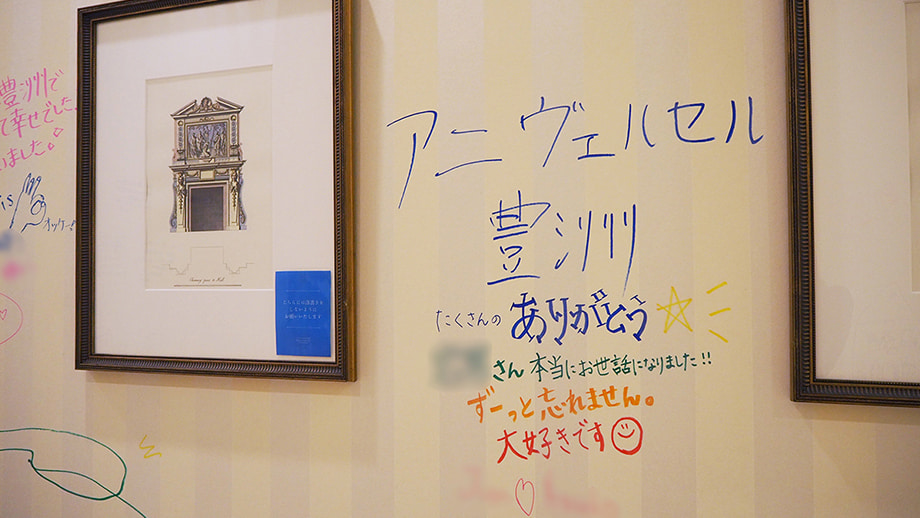 豊洲で
て幸せでした
いました。
is
オッケー!
アニヴェルセル
豊洲
たくさんの ありがとう
さん 本当にお世話になりました!!
ずーっと忘れません。
大好きです